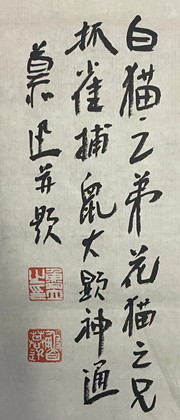 白猫之弟花猫之兄
抓雀捕鼠大显神通
慕迅并题